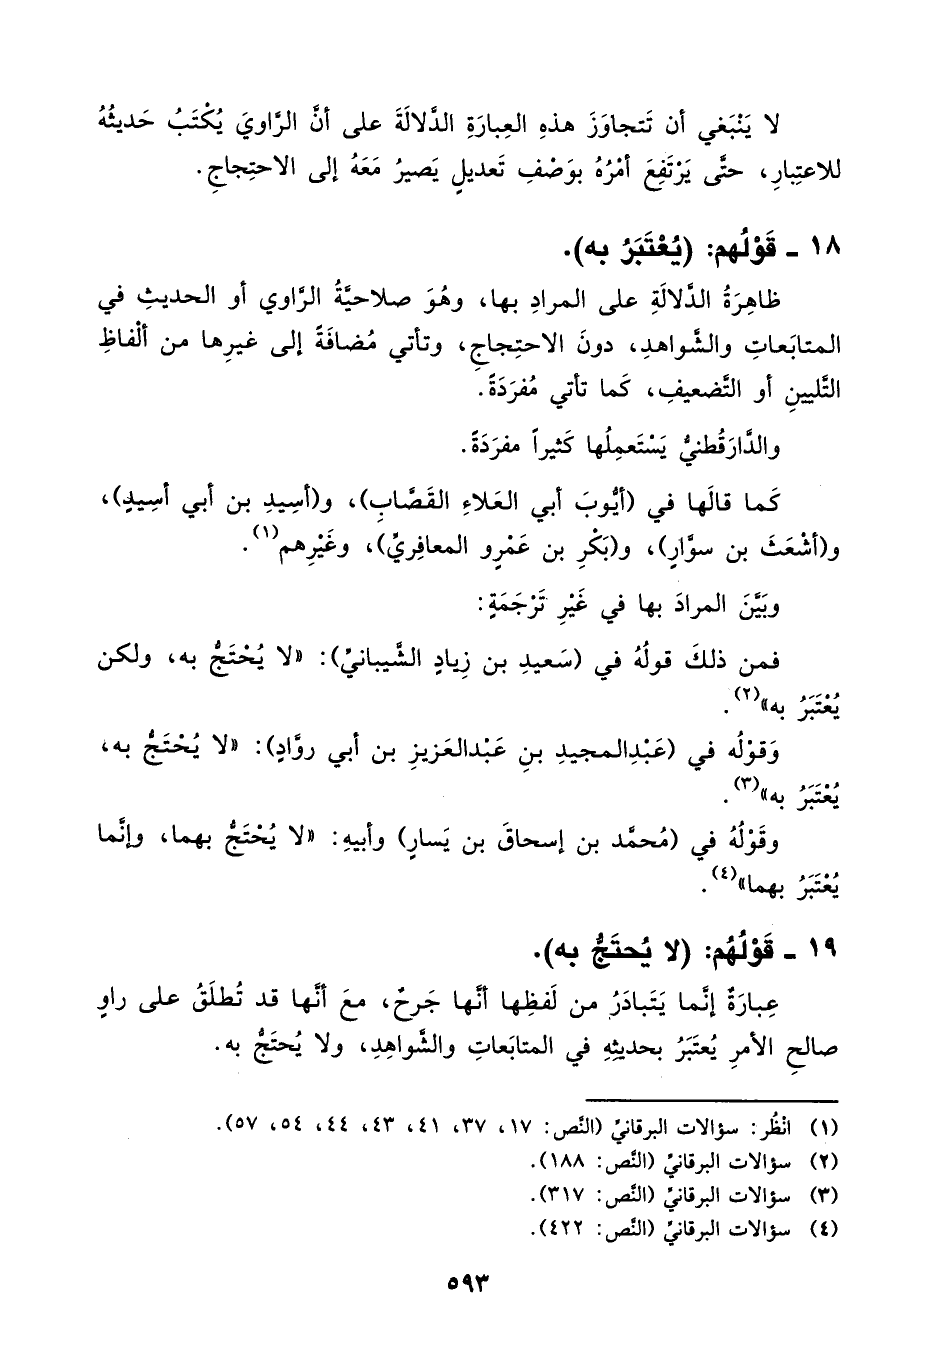 لا يَنْبَغي أن تَتجاوَزَ هذهِ العِبارَةِ الدَّلالَةَ على أنَّ الرَّاويَ يُكْتَبُ حَديثُهُ
للاعتِبارِ، حتَّى يَرْتَفِعَ أمْرُهُ بوَصْفِ تَعديلٍ يَصيرُ مَعَهُ إلى الاحتِجاجِ.
١٨ ـ قَوْلُهم: (يُعْتَبَرُ به).
ظاهِرَةُ الدَّلالَةِ على المرادِ بها، وهُوَ صلاحيَّةُ الرَّاوي أو الحديثِ في
المتابَعاتِ والشَّواهدِ، دونَ الاحتِجاجِ، وتأتي مُضافَةً إلى غيرِها من ألْفاظِ
التَّليينِ أو التَّضعيفِ، كَما تأتي مُفرَدَةً.
والدَّارَقُطنيُّ يَسْتَعمِلُها كَثيراً مفرَدَةً.
كَما قالَها في (أيُّوبَ أبي العَلاءِ القَصَّابِ)، و(أسِيدِ بن أبي أسِيدٍ)،
و(أشْعَثَ بن سوَّارٍ)، و(بَكْرِ بن عَمْرٍو المعافِريِّ)، وغَيْرِهم(١).
وبَيَّنَ المرادَ بها في غَيْرِ تَرْجَمَةٍ:
فمن ذلكَ قولُهُ في (سَعيدِ بن زِيادٍ الشَّيبانيِّ): «لا يُحْتَجُّ به، ولكن
يُعْتَبَرُ به»(٢).
وَقوْلُه في (عَبْدِالمجيدِ بنِ عَبْدالعَزيزِ بن أبي روَّادٍ): «لا يُحْتَجُّ به،
يُعْتَبَرُ به»(٣).
وقَوْلُهُ في (مُحمَّد بن إسحاقَ بن يَسارٍ) وأبيهِ: «لا يُحْتَجُّ بهما، وإنَّما
يُعْتَبَرُ بهما»(٤).
١٩ ـ قَوْلُهُم: (لا يُحتَجُّ به).
عِبارَةٌ إنَّما يَتَبادَرُ من لَفظِها أنَّها جَرحٌ، معَ أنَّها قد تُطلَقُ على راوٍ
صالحِ الأمرِ يُعتَبَرُ بحديثِهِ في المتابَعاتِ والشَّواهِدِ، ولا يُحتَجُّ به.
(١) انْظُر: سؤالات البرقانيِّ (النَّص: ١٧، ٣٧، ٤١، ٤٣، ٤٤، ٥٤، ٥٧).
(٢) سؤالات البرقانيِّ (النَّص: ١٨٨).
(٣) سؤالات البرقانيِّ (النَّص: ٣١٧).
(٤) سؤالات البرقانيِّ (النَّص: ٤٢٢).
٥٩٣